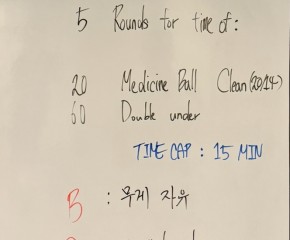 5 Rounds for time of:
20 Medicine Ball Clean (20/14)
60 Double under
TIME CAP : 15 MIN
B : 무게 자유